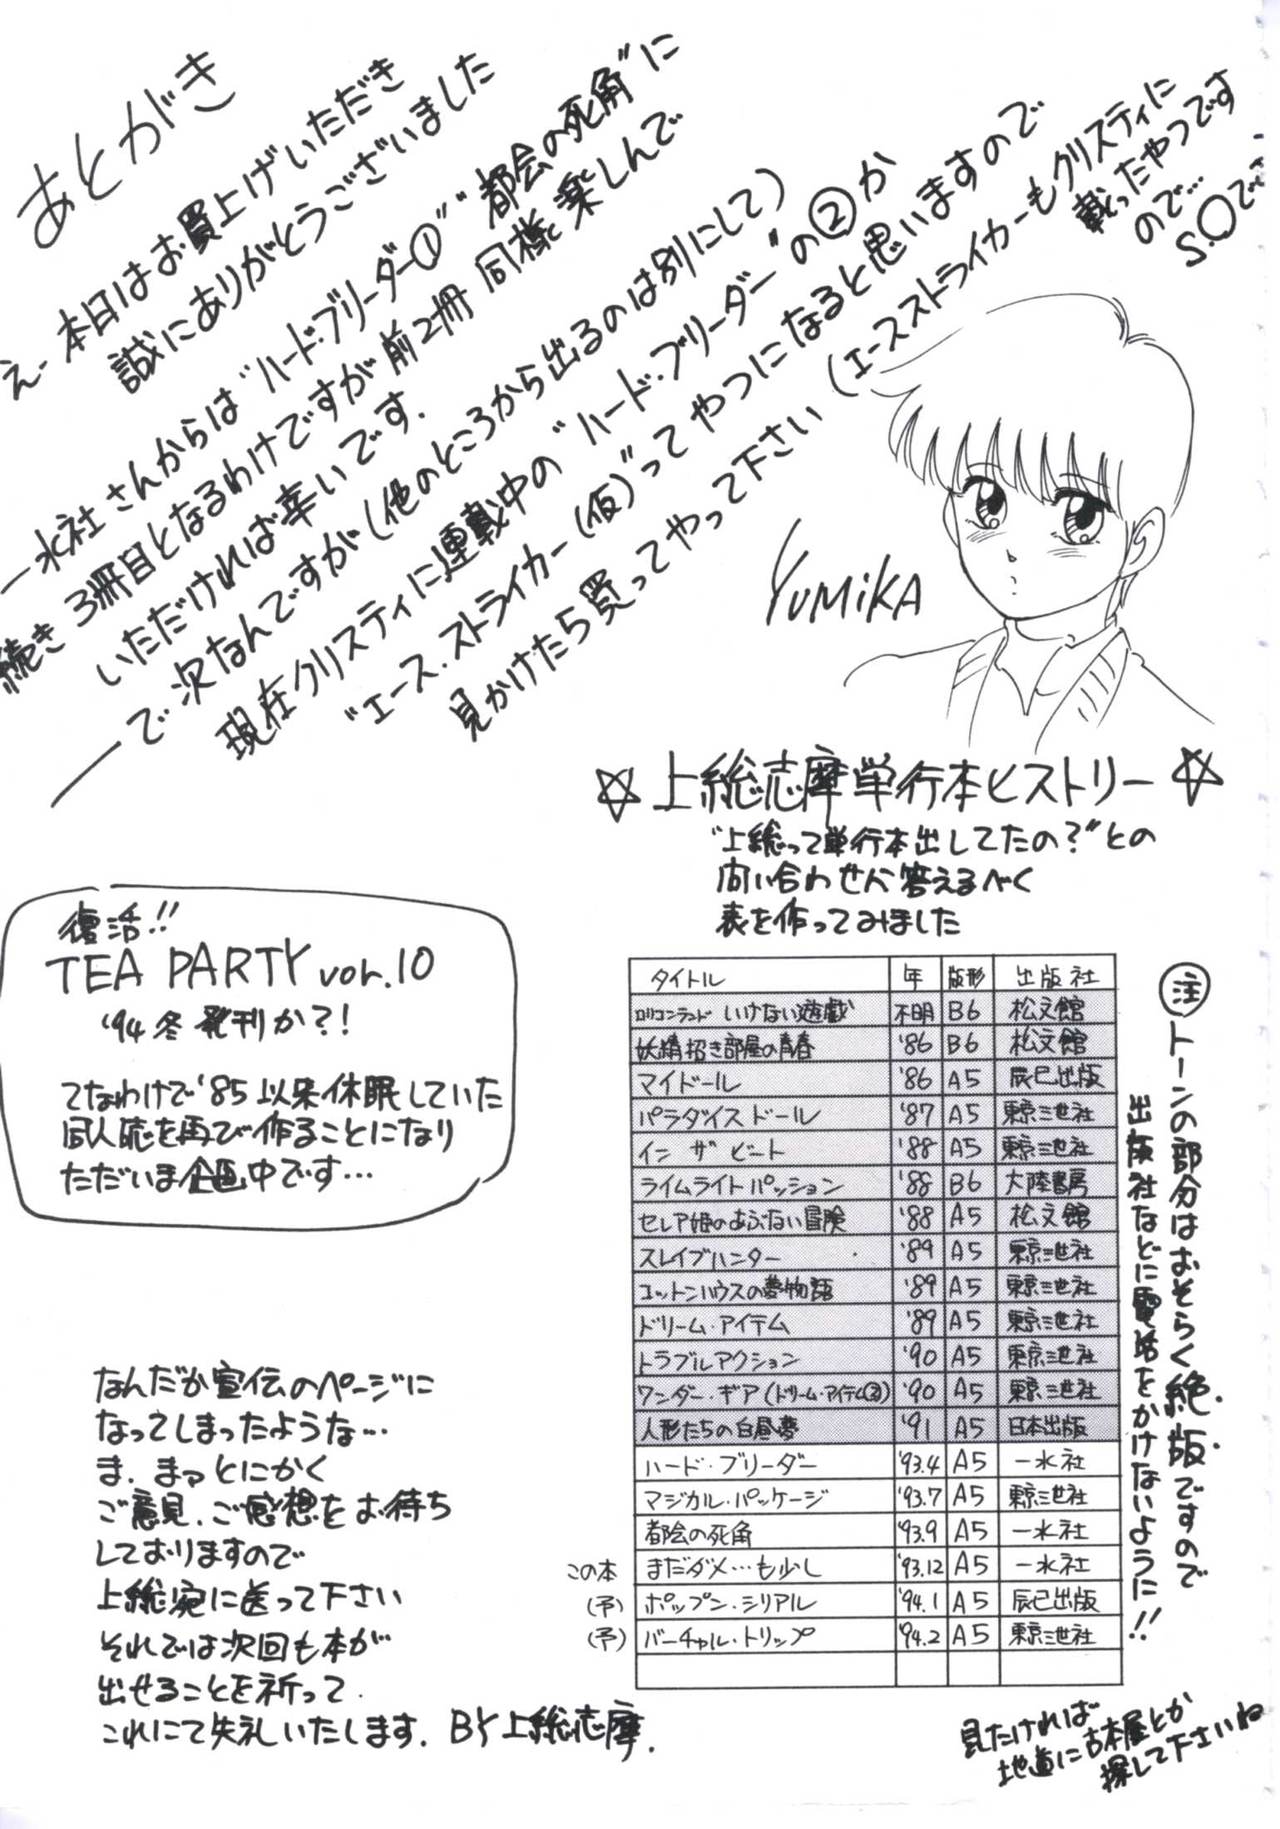 あとがき
えー本日はお買上げいただき
誠にありがとうございました
一水社さんからは"ハード・ブリーダー①""都会の死角"に
続き3冊目となるわけですが前2冊同様楽しんで
いただければ幸いです.
で次なんですが(他のところから出るのは別にして)
現在クリスティに連載中の"ハード・ブリーダー"の②か
"エース.ストライカー(仮)"ってやつになると思いますので
見かけたら買ってやって下さい(エースストライカーもクリスティに
載ったやつです
ので…
S.Oで
YUMiKA
☆上総志摩単行本ヒストリー☆
"上総って単行本出してたの?"との
問い合わせに答えるべく
表を作ってみました
復活!!
TEA PARTY vol.10
'94冬発刊か?!
てなわけで'85以来休眠していた
同人誌を再び作ることになり
ただいま企画中です…
タイトル 年 版形 出版社
ロリコンランド いけない遊戯 不明 B6 松文館
妖精招き部屋の青春 '86 B6 松文館
マイドール '86 A5 辰巳出版
パラダイスドール '87 A5 東京三世社
イン ザ ビート '88 A5 東京三世社
ライムライトパッション '88 B6 大陸書房
セレア姫のあぶない冒険 '88 A5 松文館
スレイブハンター '89 A5 東京三世社
コットンハウスの夢物語 '89 A5 東京三世社
ドリーム・アイテム '89 A5 東京三世社
トラブルアクション '90 A5 東京三世社
ワンダー・ギア(ドリーム・アイテム②) '90 A5 東京三世社
人形たちの白昼夢 '91 A5 日本出版
ハード・ブリーダー '93.4 A5 一水社
マジカル・パッケージ '93.7 A5 東京三世社
都会の死角 '93.9 A5 一水社
この本 まだダメ…も少し '93.12 A5 一水社
(予) ポップン・シリアル '94.1 A5 辰巳出版
(予) バーチャル・トリップ '94.2 A5 東京三世社
注 トーンの部分はおそらく絶版ですので
出版社などに電話をかけないように!!
見たければ
地道に古本屋とか
探して下さいね
なんだか宣伝のページに
なってしまったような…
ま、まァとにかく
ご意見、ご感想をお待ち
しておりますので
上総宛に送って下さい
それでは次回も本が
出せることを祈って
これにて失礼いたします. BY上総志摩.